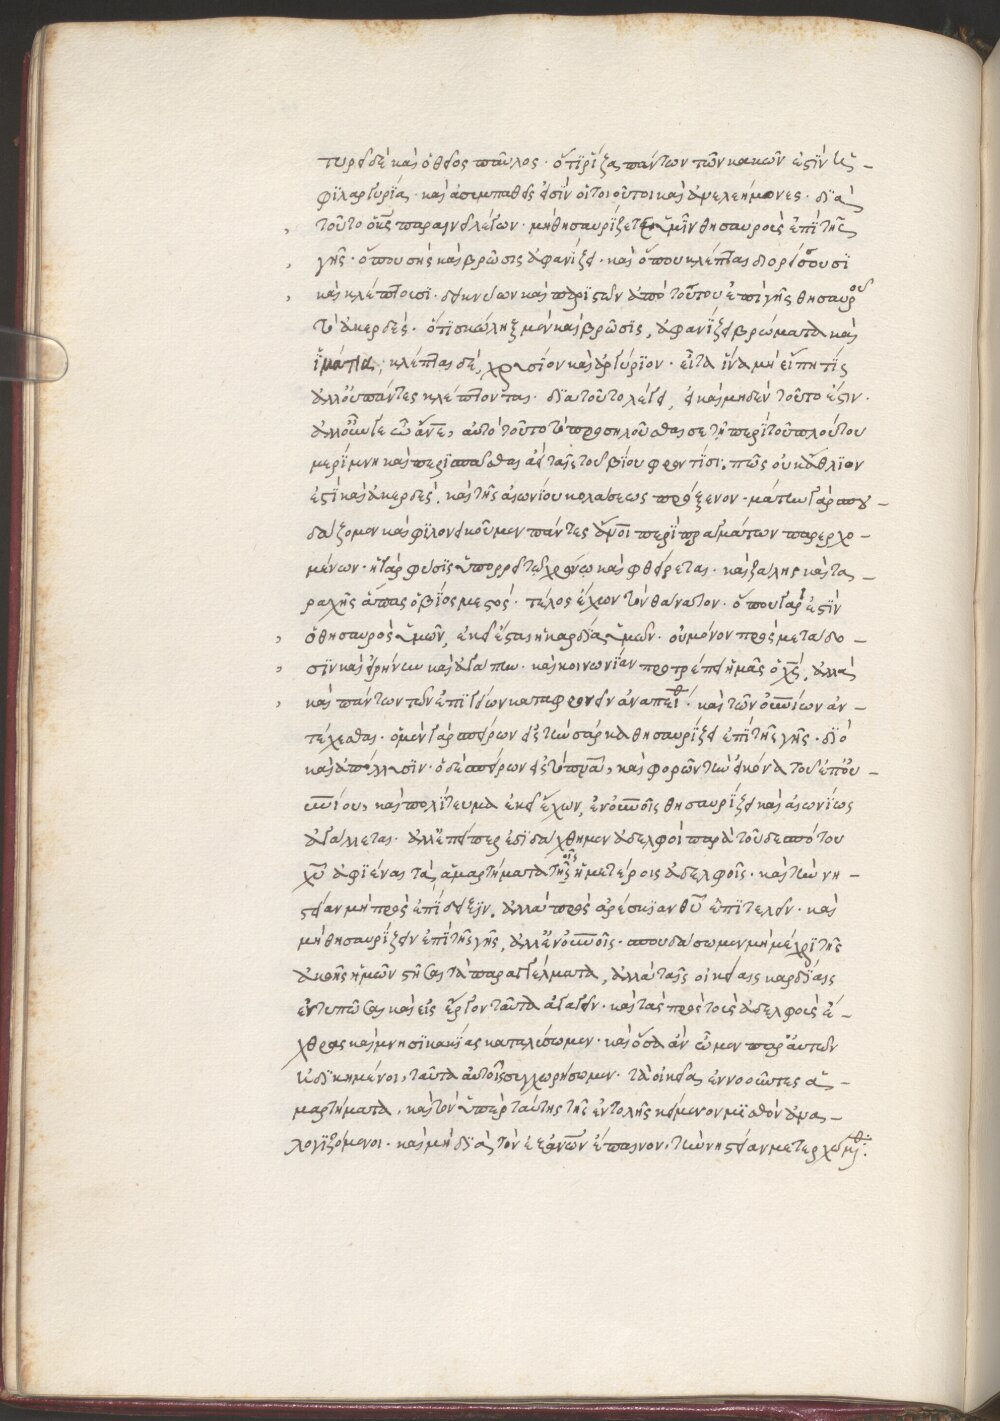 τυρεῖ δὲ καὶ ὁ θεῖος παῦλος· ὅτι ρίζα πάντων τῶν κακῶν ἐστὶν ἡ
φιλαργυρία· καὶ ἀσυμπαθεῖς εἰσὶν οἱ τοιοῦτοι καὶ ἀνελεήμονες· διὰ
τοῦτο ὁ χς παραινεῖ λέγων· μὴ θησαυρίζετε ὑμῖν θησαυροὺς ἐπὶ τῆς
γῆς· ὅπου σὴς καὶ βρῶσις ἀφανίζει· καὶ ὅπου κλέπται διορύσσουσι
καὶ κλέπτουσι· δεικνύων καὶ παριστῶν ἀπὸ τούτου ἐπὶ γῆς θησαυροῦ
τὸ ἀκερδές· ὅτι σκώληξ μὲν καὶ βρῶσις, ἀφανίζει βρώματα καὶ
ἱμάτια, κλέπται δὲ, χρυσίον καὶ ἀργύριον· εἶτα ἵνα μὴ εἴπη τίς
ἀλλ' οὐ πάντες κλέπτονται· διὰ τοῦτο λέγει, εἰ καὶ μηδὲν τοῦτο ἐστιν·
ἀλλ' οὖν γε ὦ ἄνε, αὐτὸ τοῦτο τὸ προσηλοῦσθαι σε τῆ περὶ τοῦ πλούτου
μερίμνη καὶ περισπᾶσθαι ἐν ταῖς τοῦ βίου φροντίσι, πῶς οὐκ ἄθλιον
ἐστὶ καὶ ἀκερδὲς, καὶ τῆς αἰωνίου κολάσεως πρόξενον· μάτην γὰρ σπου-
δάζομεν καὶ φιλονεικοῦμεν πάντες ἄνοι περὶ πραγμάτων παρερχο-
μένων· ἡ γὰρ φύσις ὑπορρεῖ τῷ χρόνῳ καὶ φθείρεται· καὶ ζάλης καὶ τα-
ραχῆς ἅπας ὁ βίος μεστός· τέλος ἔχων τὸν θάνατον· ὅπου γὰρ ἐστὶν
ὁ θησαυρὸς ὑμῶν, ἐκεῖ ἔσται ἡ καρδία ὑμῶν· οὐ μόνον πρὸς μετάδο-
σιν καὶ εἰρήνην καὶ ἀγάπην· καὶ κοινωνίαν προτρέπει ἡμᾶς ὁ χς, ἀλλὰ
καὶ πάντων τῶν ἐπιγείων καταφρονεῖν ἀναπείθ· καὶ τῶν οὐνίων ἀν-
τέχεσθαι· ὁ μὲν γὰρ σπείρων εἰς τὴν σάρκα θησαυρίζει ἐπὶ τῆς γῆς· διὸ
καὶ ἀπόλλυσιν· ὁ δὲ σπείρων εἰς τὸ πνα, καὶ φορῶν τὴν εἰκόνα τοῦ ἐπου-
ρανίου, καὶ πολίτευμα ἐκεῖ ἔχων, ἐν οὐνοῖς θησαυρίζει καὶ αἰωνίως
ἀγάλλεται· ἀλλ' ἐπείπερ ἐδιδάχθημεν ἀδελφοὶ παρὰ τοῦ δεσπότου
χυ ἀφιέναι τὰ ἁμαρτήματα τοῖς ἡμετέροις ἀδελφοῖς· καὶ τὴν νη-
στείαν μὴ πρὸς ἐπίδειξιν, ἀλλὰ πρὸς ἀρέσκιαν θυ ἐπιτελεῖν· καὶ
μὴ θησαυρίζειν ἐπὶ τῆς γῆς, ἀλλ' ἐν οὐνοῖς· σπουδάσωμεν μὴ μέχρι τῆς
ἀκοῆς ἡμῶν στῆσαι τὰ παραγγέλματα, ἀλλὰ ταῖς οἰκείαις καρδίαις
ἐντυπῶσαι καὶ εἰς ἔργον ταῦτα ἀγαγεῖν· καὶ τὰς πρὸς τοὺς ἀδελφοὺς ἔ-
χθρας καὶ μνησικακίας καταλύσωμεν· καὶ ὅσα ἂν ὦμεν παρ' αὐτῶν
ἠδικημένοι, ταῦτα αὐτοῖς συγχωρήσωμεν· τὰ οἰκεῖα ἐννοοῦντες ἁ-
μαρτήματα, καὶ τὸν ὑπὲρ ταύτης τῆς ἐντολῆς κείμενον μισθὸν ἀνα-
λογιζόμενοι· καὶ μὴ διὰ τὸν ἐξ ἀνων ἔπαινον, τὴν νηστείαν μετερχώμεθ: